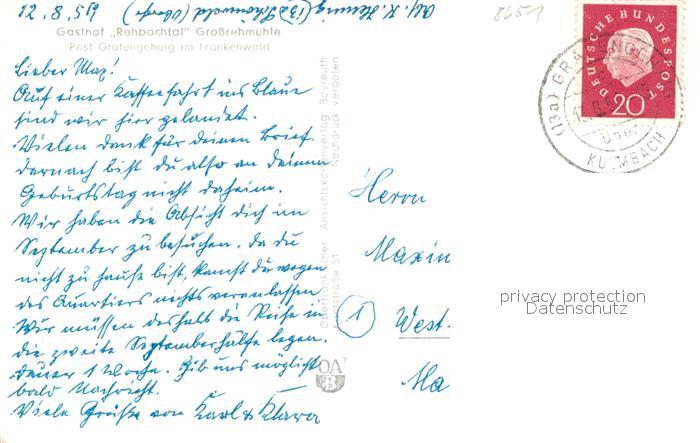 Abs. K. Hennig (13a) Schönwald (Obfr.) 15.8.21
8651
Gasthof „Rehbachtal" Großrehmühle
Post Grafengehaig im Frankenwald
Lieber Max!
Auf einer Kaffeefahrt ins Blaue
sind wir hier gelandet.
Vielen Dank für deinen Brief.
Darnach bist du also an deinem
Geburtstag nicht daheim.
Wir haben die Absicht dich im
September zu besuchen. Da du
nicht zu Hause bist, kannst du wegen
des Quartiers nichts veranlassen
Wir müssen deshalb die Reise in
die zweite Septemberhälfte legen.
Dauer 1 Woche. Gib uns möglichst
bald Nachricht.
Viele Grüße von Karl & Klara
Oberfränkischer Ansichtskartenverlag Bayreuth
Nachdruck verboten
OAV
B
DEUTSCHE BUNDESPOST
20
(13a)
über
KULMBACH
Herrn
Maxim
(1) West-
Ma
privacy protection
Datenschutz